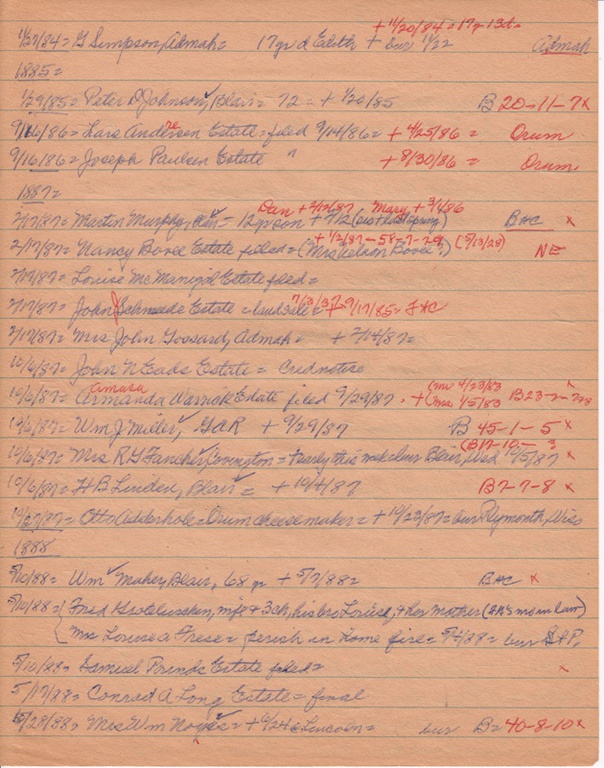 + 11/20/84 = 17y-13d=
11/27/84 = G Simpson, Admah = 17 yr d Edith + bur 11/22 Admah
1885=
1/29/85 = Peter D Johnson, Blair = 72 = + 1/20/85 B 20-11-7 x
9/16/86 = Lars Andersen Estate = filed 9/14/86 = + 4/25/86 = Orum
9/16/86 = Joseph Paulsen Estate " + 8/30/86 = Orum
1887=
Dan + 2/12/87 Mary + 3/1/86
2/17/87 = Martin Murphy, = 12 yr son + 2/12 BHC x
+ 1/2/87 - 58-7-29 (5/13/28)
2/17/87 = Nancy Bovee Estate filed = (Mrs Nelson Bovee?) NE
2/17/87 = Louise McManigal Estate filed =
2/17/87 = John Schmude Estate = land sale = 7/13/37 + 9/17/85 = FHC
2/17/87 = Mrs John Gossard, Admah = + 2/14/87 =
10/6/87 = John N Eads Estate = Cred notice
Amasa (mr 4/23/83 x
10/6/87 = Armanda Warrick Estate filed 9/29/87 . + (mrs 1/5/83 B23-2-
10/6/87 = Wm J Miller, GAR + 9/29/87 B 45-1-5 x
(B17-10- 3
10/6/87 = Mrs R G Fancher, Covington = + early this wk bur Blair, Wed 10/5/87 x
10/6/87 = H B Linden, Blair = + 10/4/87 B7-7-8 x
10/27/87 = Otto Adderhole = Orum cheesemaker = + 10/23/87 = bur Plymouth, Wisc
1888
5/10/88 = Wm Maher, Blair, 68 yr + 5/7/88 = BHC x
5/10/88 = Fred Groteluschen, wife + 3 ch, his bro Louis, + her mother
Mrs Louise A Frese = perish in home fire = 5/4/88 = bur
5/10/88 = Samuel Prinds Estate filed = x
5/17/88 = Conrad A Long Estate = final
6/28/88 = Mrs Wm Noyes = + 6/24 @ Lincoln = bur B = 40-8-10 x